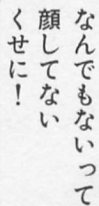 なんでもないって
顔してない
くせに！